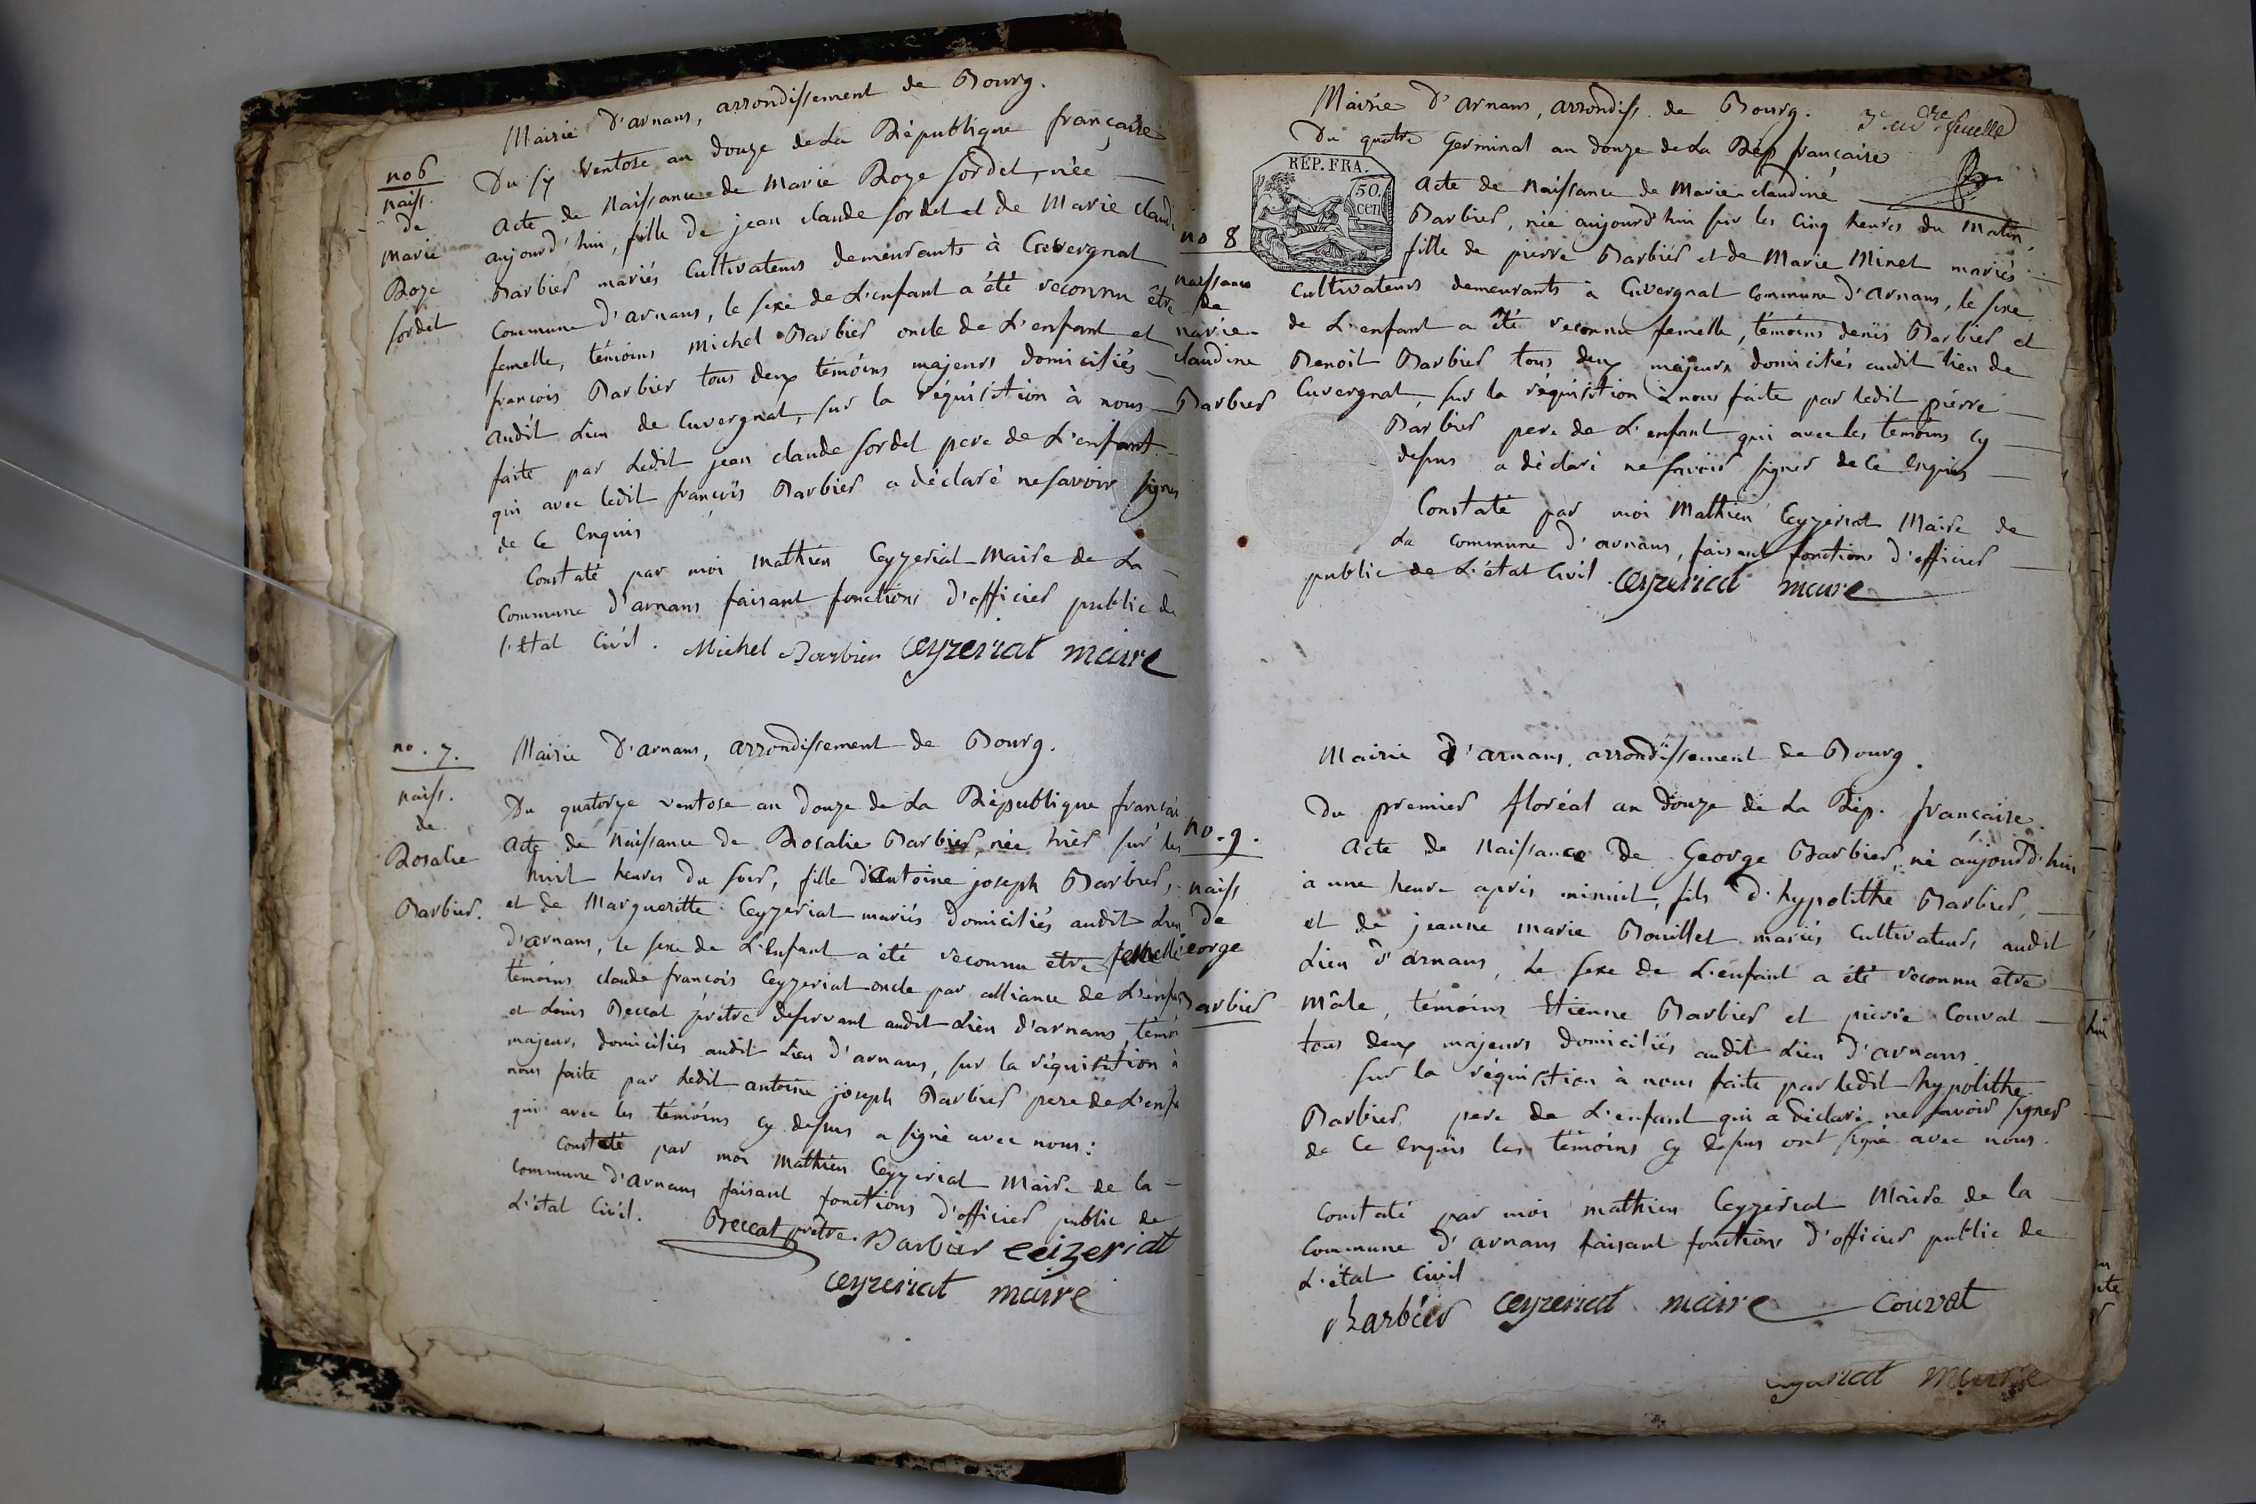 Mairie d'arnans, arrondissement de Bourg.
no 6
naiss.
de
Marie
Roze
sordet
Du six Ventose an douze de La République française
Acte de Naissance de Marie Roze sordet, née
aujourd'hui, fille de jean claude sordet et de Marie claud
Barbier mariés Cultivateurs demeurants à Cuvergnat
Commune d'arnans, le sexe de L'enfant a été reconnu être
femelle, témoins Michel Barbier oncle de L'enfant et
françois Barbier tous deux témoins majeurs domiciliés
audit Lieu de Cuvergnat, sur la réquisition à nous
faite par Ledit jean claude sordet pere de L'enfant
qui avec ledit françois Barbier a déclaré ne savoir signer
de ce Enquis
Constaté par moi Mathieu Ceyzeriat Maire de La
Commune d'arnans faisant fonctions d'officier public de
l'Etat Civil. Michel Barbier Ceyzeriat maire
no. 7.
naiss.
de
Rosalie
Barbier.
Mairie d'arnans, arrondissement de Bourg.
Du quatorze ventose an douze de La République françai
Acte de Naissance de Rosalie Barbier, née hier sur les
huit heures du soir, fille d'antoine joseph Barbier,
et de Margueritte Ceyzeriat mariés domiciliés audit Lieu
d'arnans, le sexe de L'Enfant a été reconnu être femelle
témoins claude françois Ceyzeriat oncle par alliance de L'enfan
et Louis Beccat prêtre desservant audit Lieu d'arnans, témoi
majeurs domiciliés audit Lieu d'arnans, sur la réquisition à
nous faite par Ledit antoine joseph Barbier pere de L'enfa
qui avec les témoins cy dessus a signé avec nous:
Constaté par moi Mathieu Ceyzeriat Maire de la
Commune d'arnans faisant fonctions d'officier public de
L'état Civil.
Beccat prêtre. Barbier Ceizeriat
Ceyzeriat maire
Mairie d'arnans, arrondiss. de Bourg.
3e feuille
Du quatre Germinal an douze de La Rép française
RÉP. FRA.
50
cen
no 8
naissance
de
marie
claudine
Barbier
Acte de Naissance de Marie claudine
Barbier, née aujourd'hui sur les Cinq heures du Matin,
fille de pierre Barbier et de Marie Minet mariés
Cultivateurs demeurants à Cuvergnat Commune d'arnans, le sexe
de L'enfant a été reconnu femelle, témoins denis Barbier et
Benoit Barbier tous deux majeurs domiciliés audit lieu de
Cuvergnat, sur la réquisition à nous faite par ledit pierre
Barbier pere de L'enfant qui avec les temoins cy
dessus a déclaré ne savoir signer de Ce Enquis
Constaté par moi Mathieu Ceyzeriat Maire de
La commune d'arnans, faisant fonctions d'officier
public de L'état Civil. Ceyzeriat maire
no. 9.
naiss
de
eorge
Barbier
Mairie d'arnans, arrondissement de Bourg.
Du premier floréal an douze de La Rép. française.
Acte de Naissance de George Barbier, né aujourd'hui
à une heure après minuit, fils d'hypolithe Barbier,
et de jeanne marie Bouillet mariés Cultivateurs audit
Lieu d'arnans, Le sexe de L'enfant a été reconnu etre
Mâle, témoins Etienne Barbier et pierre Couvat
tous deux majeurs domiciliés audit Lieu d'arnans
sur la réquisition à nous faite par ledit hypolithe
Barbier, pere de L'enfant qui a déclaré ne savoir signer
de Ce Enquis les témoins cy dessus ont signé avec nous.
Constaté par moi mathieu Ceyzeriat Maire de la
Commune d'arnans faisant fonctions d'officier public de
L'état Civil
Barbier Ceyzeriat maire Couvat